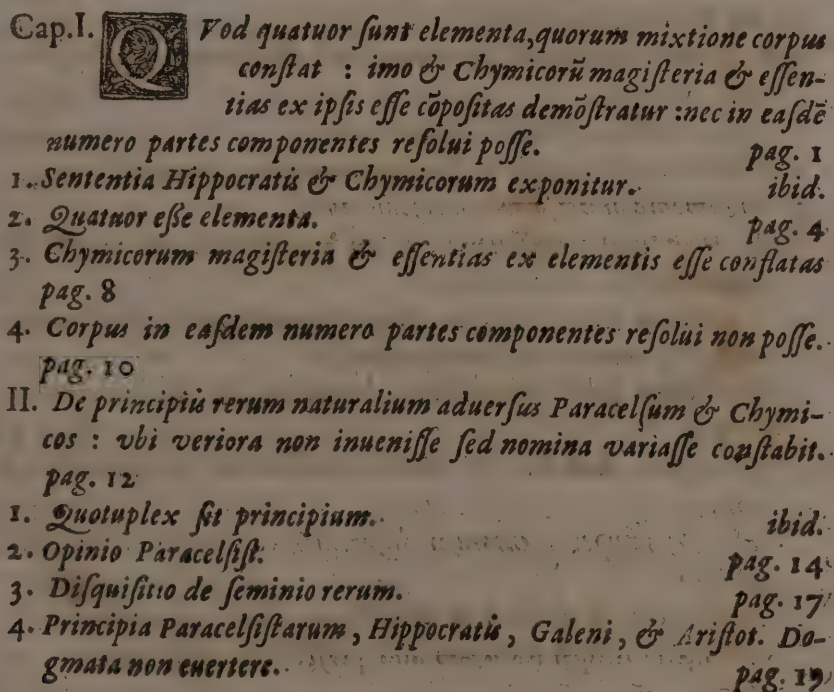 Cap.I. QVod quatuor ſunt elementa,quorum mixtione corpus
conſtat : imo & Chymicorũ magiſteria & eſſen-
tias ex ipſis eſſe cõpoſitas demõſtratur :nec in eaſdẽ
numero partes componentes reſolui poſſe. pag. 1
1. Sententia Hippocratis & Chymicorum exponitur. ibid.
2. Quatuor eſſe elementa. pag. 4
3. Chymicorum magiſteria & eſſentias ex elementis eſſe conflatas
pag. 8
4. Corpus in eaſdem numero partes componentes reſolui non poſſe.
pag. 10
II. De principiis rerum naturalium aduerſus Paracelſum & Chymi-
cos : vbi veriora non inueniſſe ſed nomina variaſſe conſtabit.
pag. 12
1. Quotuplex ſit principium. ibid.
2. Opinio Paracelſiſt. pag. 14
3. Diſquiſitio de ſeminio rerum. pag. 17
4. Principia Paracelſiſtarum, Hippocratis, Galeni, & Ariſtot. Do-
gmata non euertere. pag. 19